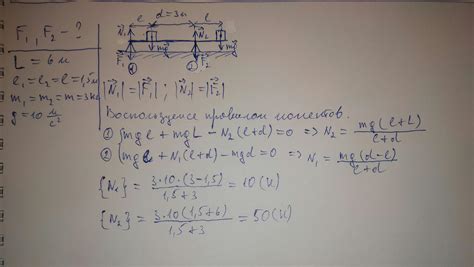 F₁, F₂ - ?
L = 6 м
l₁ = l₂ = l = 1,5 м
m₁ = m₂ = m = 3 кг
g = 10 м/с²
l d = 3м l
N₁ N₂
mg mg
F₁ F₂
|N₁| = |F₁| ; |N₂| = |F₂|
Воспользуемся правилом моментов.
1 { mgl + mgL - N₂(l+d) = 0 => N₂ = mg(l+L) / l+d
2 { mgl + N₁(l+d) - mgd = 0 => N₁ = mg(d-l) / l+d
{N₁} = 3·10·(3-1,5) / 1,5+3 = 10 (Н)
{N₂} = 3·10(1,5+6) / 1,5+3 = 50 (Н)